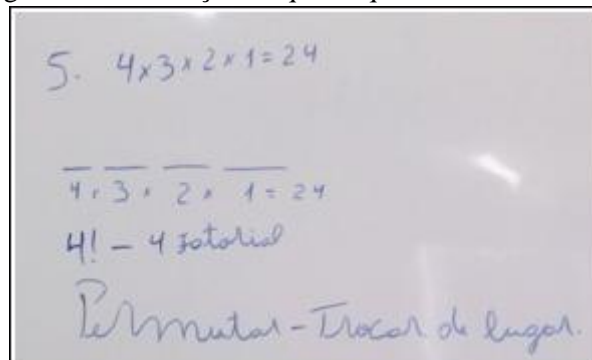 5. 4x3x2x1=24
__ __ __ __
4x3x2x1=24
4! - 4 fatorial
Permutar - Trocar de lugar.